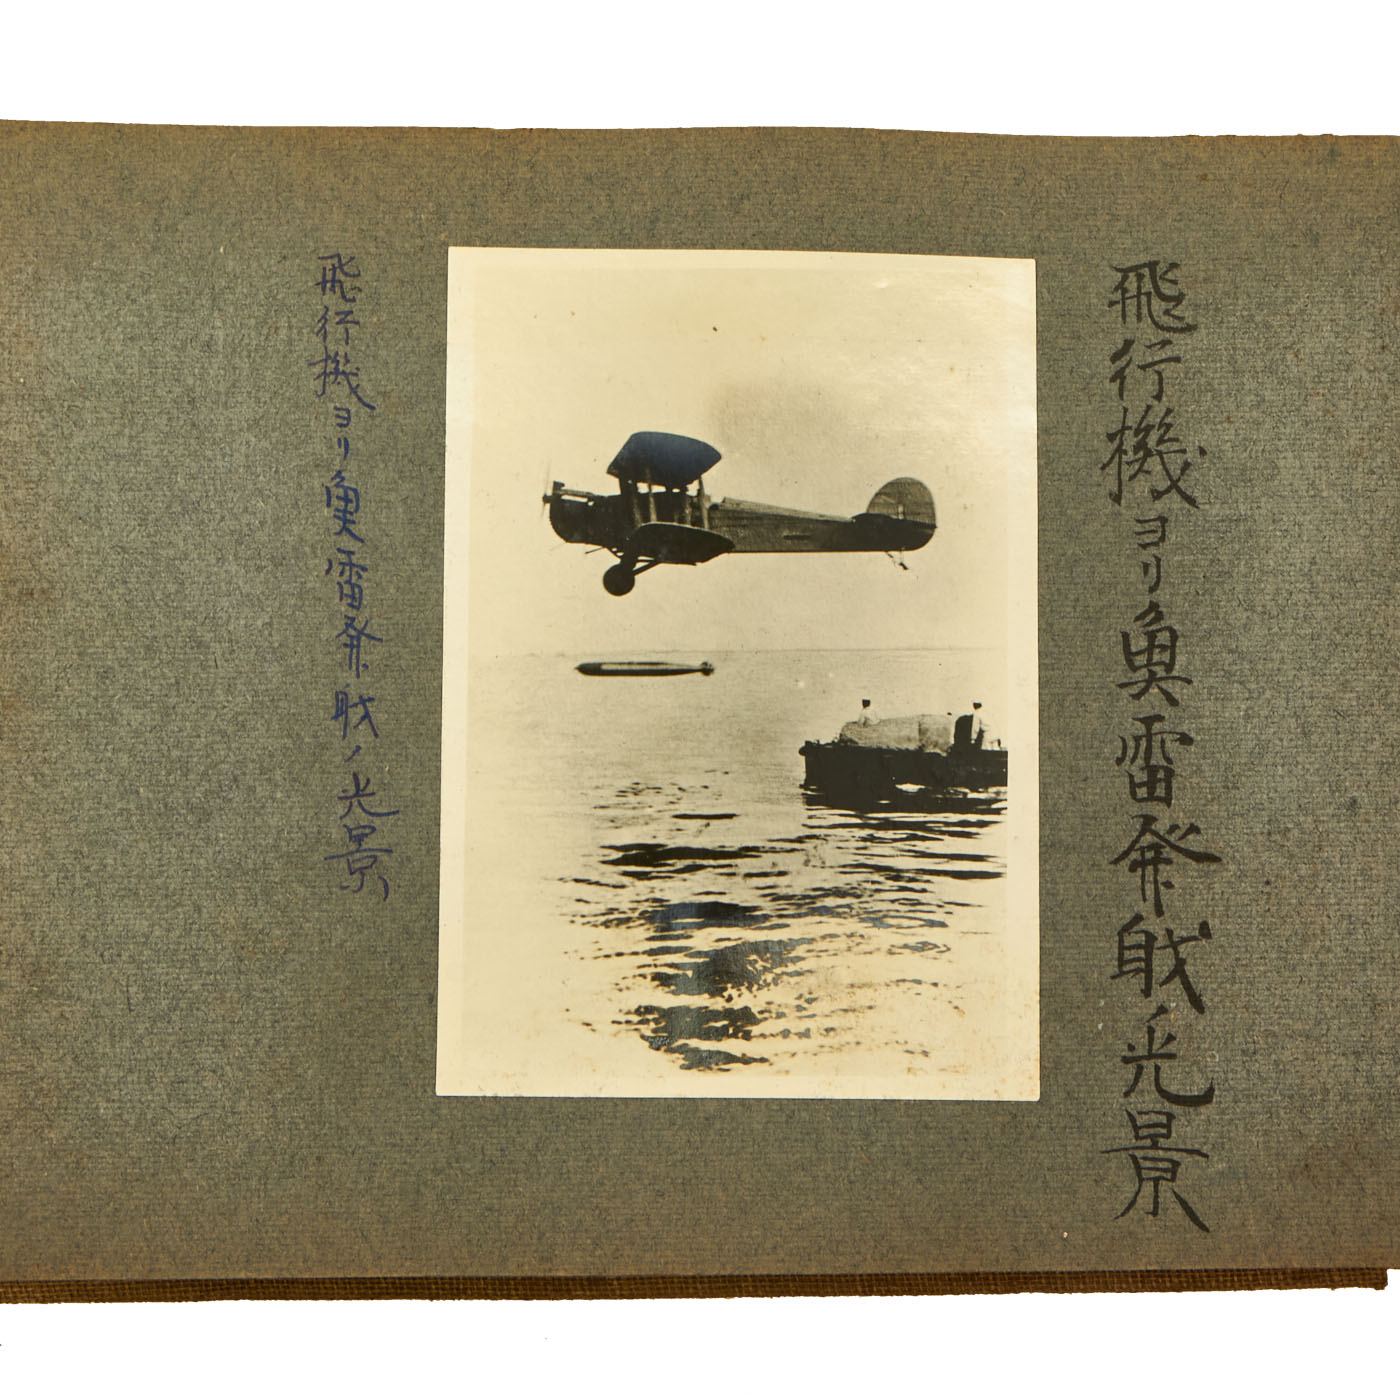 飛行機ヨリ魚雷発射ノ光景
飛行機ヨリ魚雷発射ノ光景